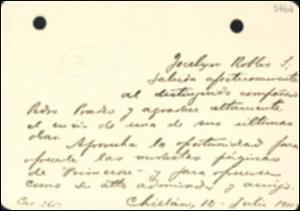 5464
Jocelyn Robles S.
saluda afectuosamente
al distinguido compañero
Pedro Prado y agradece altamente
el envío de una de sus últimas
obras. Aprovecha la oportunidad para
ofrecerle las modestas páginas
de "Primeros" y para ofrecerse
como su atto admirador y amigo.
Chillán, 10 - Julio
Cas. 265